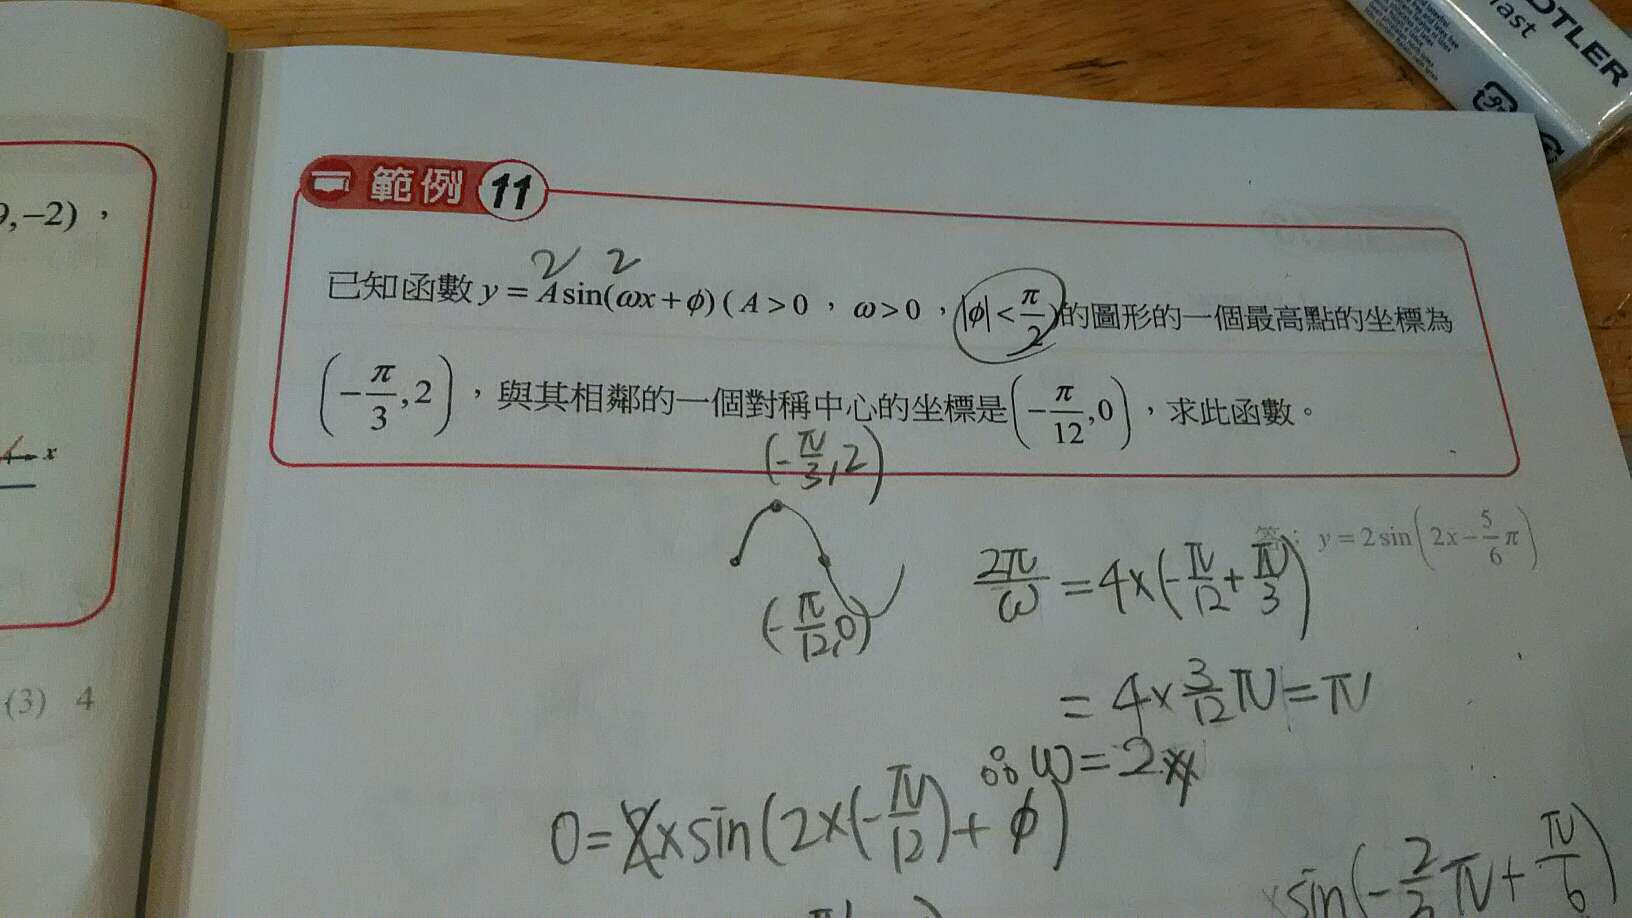 STAEDTLER
last
9,-2)，
x
(3) 4
範例 11
2 2
已知函數 y = A sin(ωx+φ) ( A > 0 ， ω > 0 ， |φ| < π/2 ) 的圖形的一個最高點的坐標為
(-π/3, 2) ，與其相鄰的一個對稱中心的坐標是 (-π/12, 0) ，求此函數。
(-π/3, 2)
答： y = 2 sin(2x - 5/6 π)
(-π/12, 0)
2π/ω = 4×(-π/12 + π/3)
= 4×3/12 π = π
∴ω = 2
0 = 2×sin(2×(-π/12) + φ)
sin(-2/3 π + π/6)